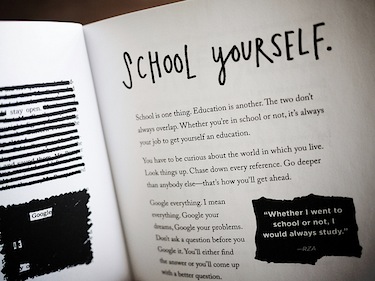 stay open.
Google
SCHOOL YOURSELF.
School is one thing. Education is another. The two don't
always overlap. Whether you're in school or not, it's always
your job to get yourself an education.
You have to be curious about the world in which you live.
Look things up. Chase down every reference. Go deeper
than anybody else—that's how you'll get ahead.
Google everything. I mean
everything. Google your
dreams, Google your problems.
Don't ask a question before you
Google it. You'll either find
the answer or you'll come up
with a better question.
"Whether I went to
school or not, I
would always study."
—RZA